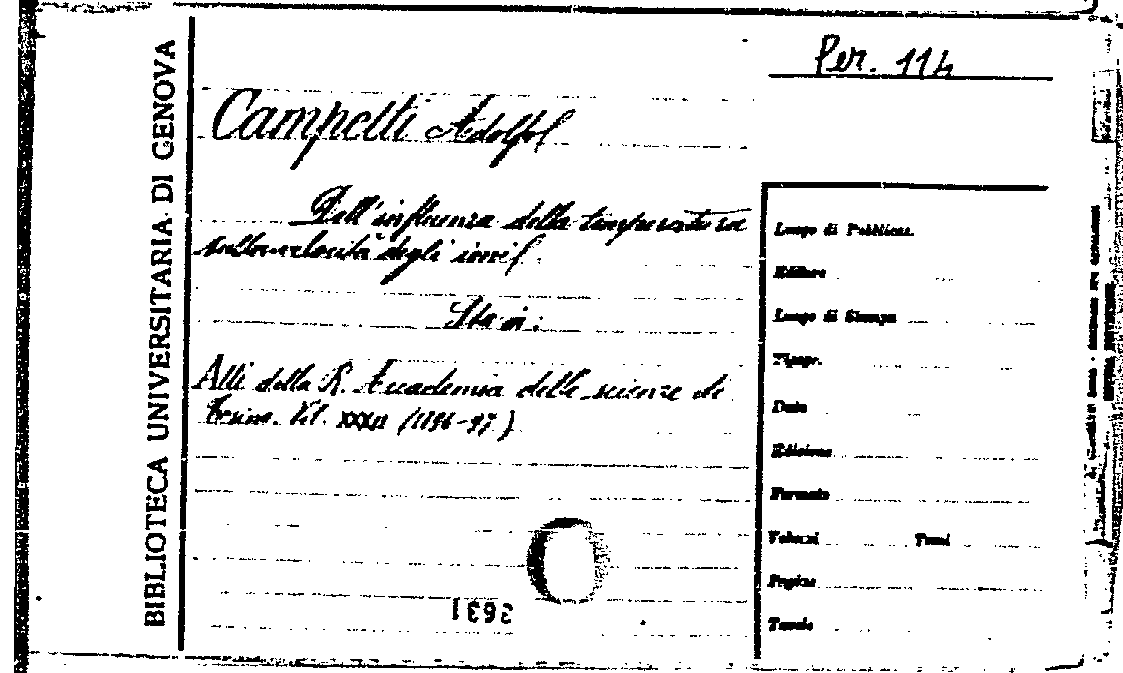 BIBLIOTECA UNIVERSITARIA DI GENOVA
Per. 114
Campetti Adolfo
Dell'influenza della temperatura
sulla velocità degli ioni
Sta in:
Atti della R. Accademia delle scienze di
Torino. Vol. XXXII (1896-97)
3631
Luogo di Pubblicaz.
Editore
Luogo di Stampa
Tipogr.
Data
Edizione
Formato
Volumi Tomi
Pagine
Tavole